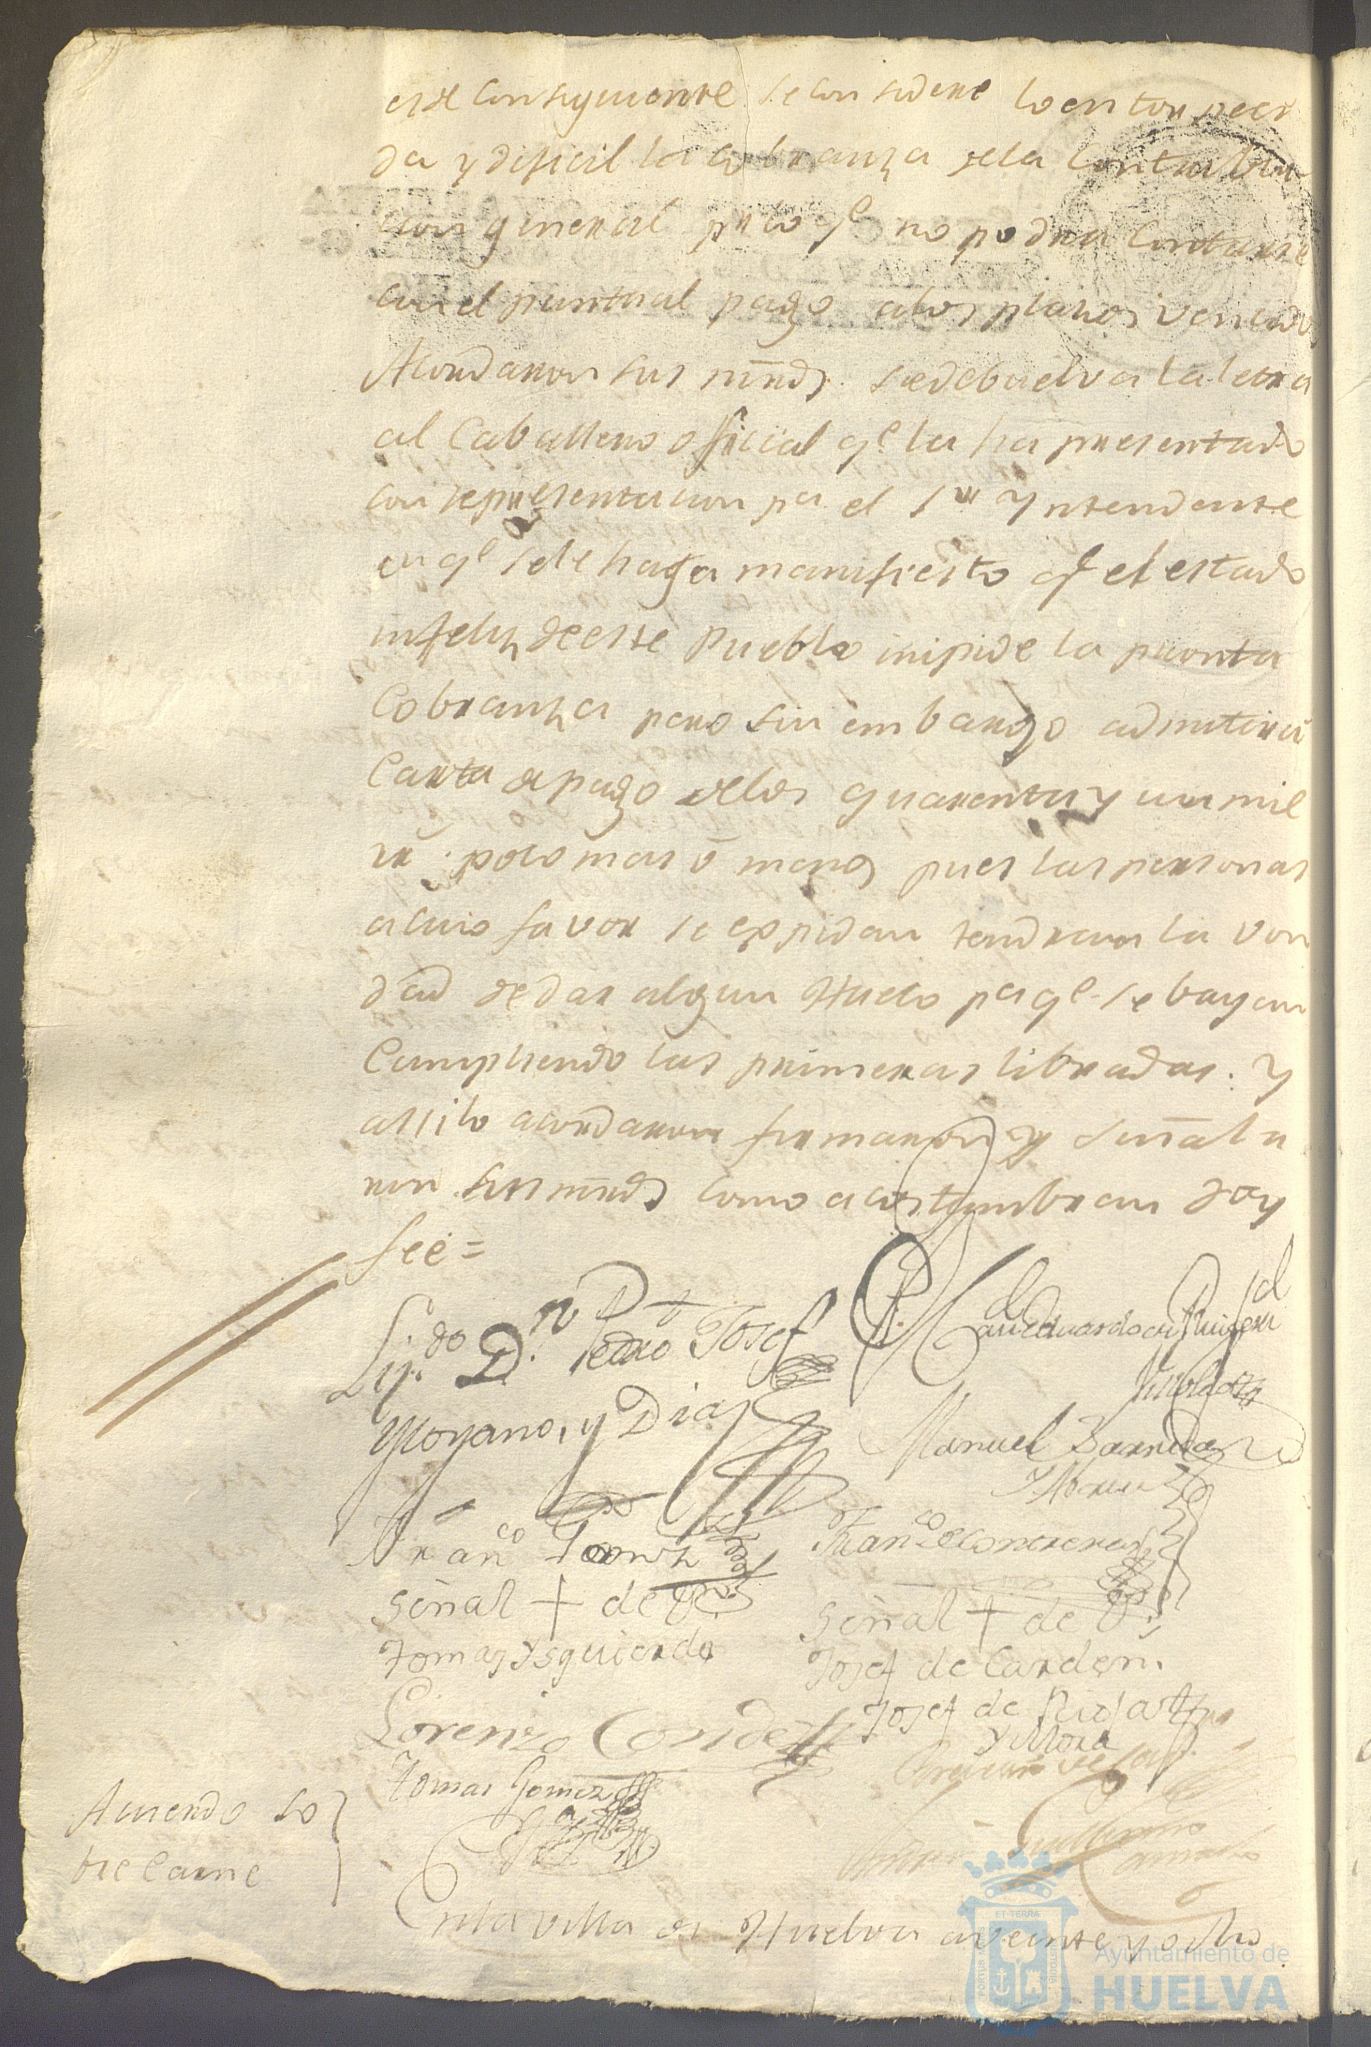 este consiguiente se considere lo entorpeci
da y dificil la cobranza de la Contribu
cion general pr lo qe no podra contarse
con el puntual pago a los plazos vencidos
Acordaron sus mrds. se debuelva la letra
al Caballero oficial qe la ha presentado
con representacion pa el Sor Yntendente
en qe se le haga manifiesto qe el estado
infeliz de este Pueblo impide la pronta
Cobranza pero sin embargo admitira
Carta de pago de los quarenta y un mil
rs. poco mas ó menos pues las personas
a cuio favor se expidan tendran la von
dad de dar algun Hueco pa qe se bayan
Cumpliendo las primeras libradas: Y
assi lo acordaron firmaron y señala
ron sus mrds como acostumbran doy
feé =
Lizdo Dn Pedro Josef
Moyano, y Diaz
Manuel Barreda
y
Franco Gomez
Franco de Contreras
Señal + de
Tomas Ysquierdo
Señal + de
Josef de Carden.
Lorenzo Conde
Josef de
y Mora
Tomas Gomez
Acuerdo so
bre Carne
En la villa de Huelva a veinte y ocho
Ayuntamiento de
HUELVA